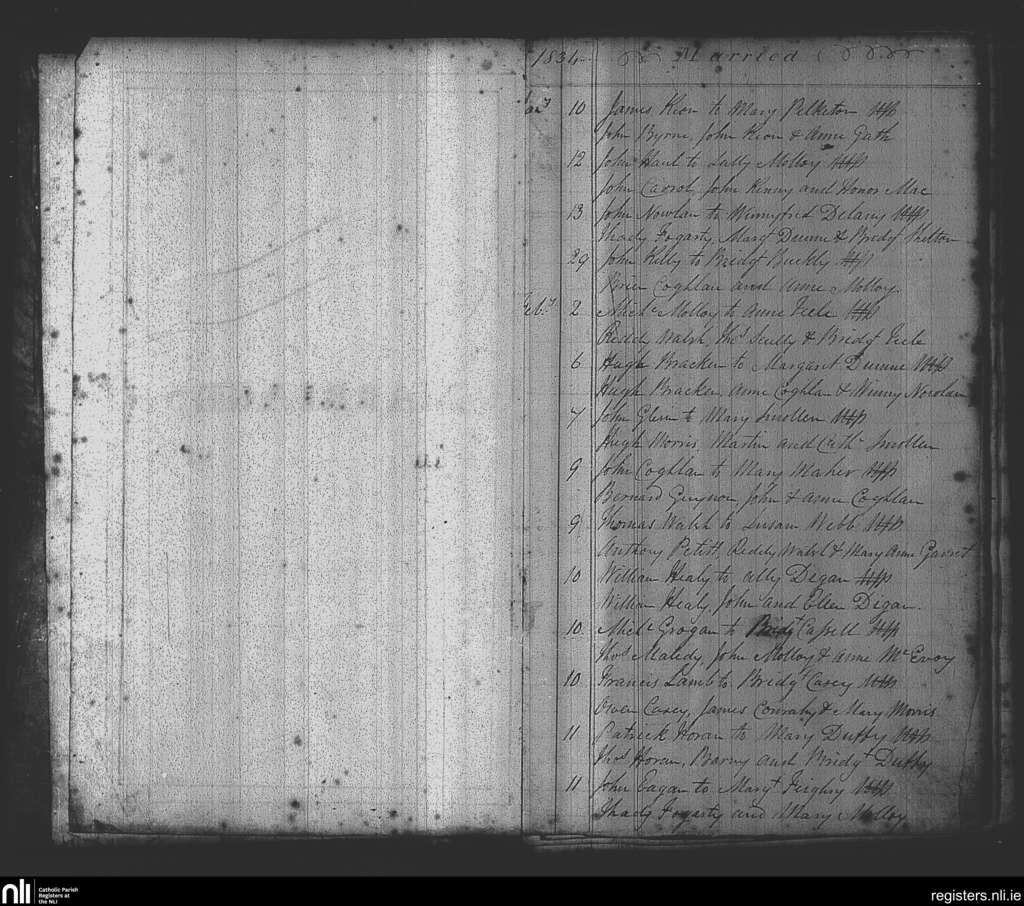 1834 Married
Jany 10 James Kion to Mary Pelketon
John Byrne, John Kion & Anne Gath
12 John Hant to Sally Molloy
John Carrol, John Kinny and Honor Mac
13 John Nowlan to Winnyfred Delany
Thady Fogarty, Margt Dunne & Bridgt Shelton
29 John Kelly to Bridgt Buckly
Brien Coghlan and Anne Molloy
Feby 2 Michl Molloy to Anne Feele
Reddy Walsh, Thos Scully & Bridgt Feele
6 Hugh Bracken to Margaret Dunne
Hugh Bracken, Anne Coghlan & Winny Nowlan
7 John Glenn to Mary Smollen
Hugh Morris, Martin and Cathe Smollen
9 John Coghlan to Mary Maher
Bernard John & Anne Coghlan
9 Thomas Walsh to Susan Webb
Anthony Petitt, Reddy Walsh & Mary Anne Garret
10 William Healy to Ally Degan
William Healy, John and Ellen Digan.
10. Michl Grogan to Bridgt Cassell
Thos Maledy, John Molloy & Anne McEvoy
10 Francis Lamb to Bridgt Casey
Owen Casey, James Conrahy & Mary Morris
11 Patrick Horan to Mary Duffy
Thos Horan, Barny and Bridgt Duffy
11 John Eagan to Margt Ferghny
Thady Fogarty and Mary Molloy
nli Catholic Parish
Registers at
the NLI
registers.nli.ie